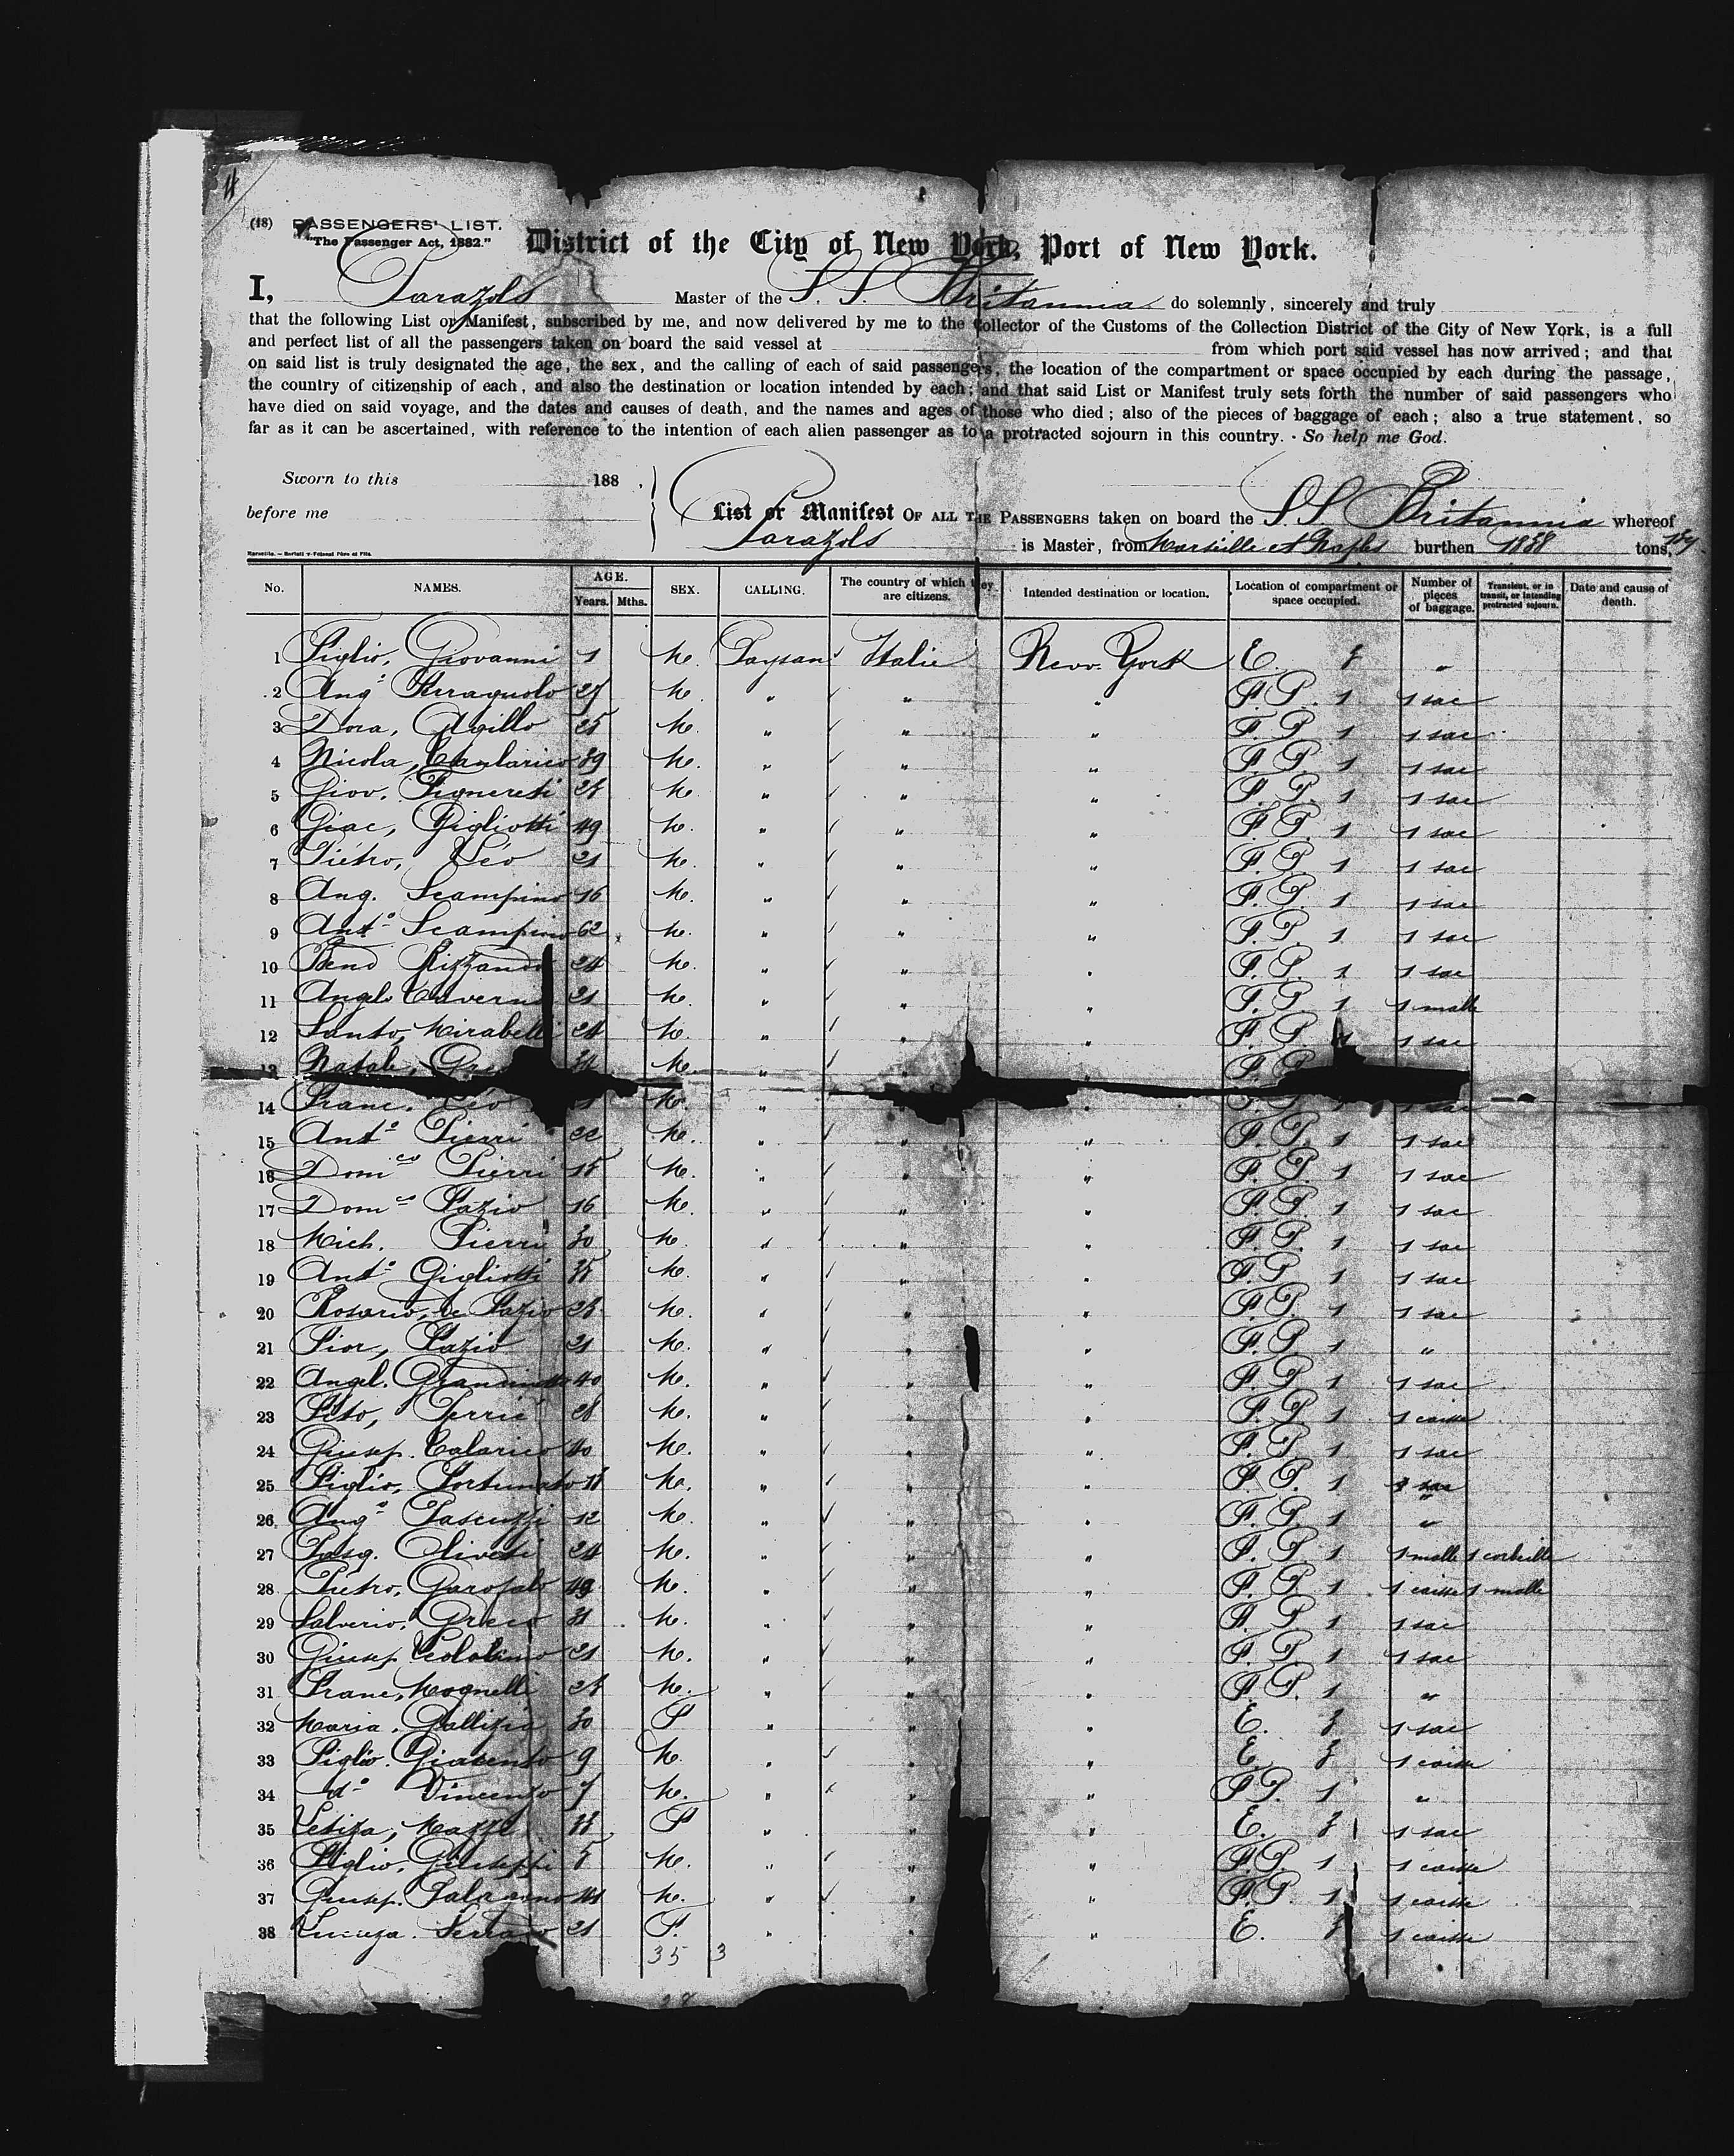 4
(18) PASSENGERS' LIST.
"The Passenger Act, 1882."
District of the City of New York, Port of New York.
I, Parazols Master of the S. S. Britannia do solemnly, sincerely and truly
that the following List or Manifest, subscribed by me, and now delivered by me to the Collector of the Customs of the Collection District of the City of New York, is a full
and perfect list of all the passengers taken on board the said vessel at from which port said vessel has now arrived; and that
on said list is truly designated the age, the sex, and the calling of each of said passengers, the location of the compartment or space occupied by each during the passage,
the country of citizenship of each, and also the destination or location intended by each; and that said List or Manifest truly sets forth the number of said passengers who
have died on said voyage, and the dates and causes of death, and the names and ages of those who died; also of the pieces of baggage of each; also a true statement, so
far as it can be ascertained, with reference to the intention of each alien passenger as to a protracted sojourn in this country. So help me God.
Sworn to this 188 .
before me
List or Manifest OF ALL THE PASSENGERS taken on board the S S Britannia whereof
Parazols is Master, from Marseille et Naples burthen 1888 tons,
No. NAMES. AGE. Years. Mths. SEX. CALLING. The country of which they are citizens. Intended destination or location. Location of compartment or space occupied. Number of pieces of baggage. Transient, or in transit, or intending protracted sojourn. Date and cause of death.
1 Figlio, Giovanni 1 M. Paysan Italie New-York E. 3 "
2 Ang° 27 M. " " " F. P. 1 1 sac
3 Dora, 25 M. " " " F. P. 1 1 sac
4 Nicola, 39 M. " " " F. P. 1 1 sac
5 Giov. M. " " " F. P. 1 1 sac
6 Giac, Gigliotti 49 M. " " " F. P. 1 1 sac
7 Pietro, Leo 21 M. " " " F. P. 1 1 sac
8 Ang. Scampino 16 M. " " " F. P. 1 1 sac
9 Ant° Scampino 62 M. " " " F. P. 1 1 sac
10 24 M. " " " F. P. 1 1 sac
11 Angelo 21 M. " " " F. P. 1 1 malle
12 Santo, Mirabelli 24 M. " " " F. P. 1 1 sac
13 Natale, M. " " F. P.
14 Franc. Leo M. " " F. P. 1 1 sac
15 Ant° Pierri 22 M. " " " F. P. 1 1 sac
16 Dom co Pierri 15 M. " " " F. P. 1 1 sac
17 Dom co Fazio 16 M. " " " F. P. 1 1 sac
18 Mich. Pierri 30 M. " " " F. P. 1 1 sac
19 Ant° Gigliotti 35 M. " " " F. P. 1 1 sac
20 Rosario, de Fazio M. " " " F. P. 1 1 sac
21 Fior, Fazio 21 M. " " " F. P. 1 "
22 Angel. 40 M. " " " F. P. 1 1 sac
23 28 M. " " " F. P. 1 1 caisse
24 Giusep. Calarico 40 M. " " " F. P. 1 1 sac
25 Figlio, Fortunato M. " " " F. P. 1
26 Ang° Pascuzzi 12 M. " " " F. P. 1 "
27 Pasq. Oliveti 24 M. " " " F. P. 1 1 malle 1 corbeille
28 Pietro, Garofalo 49 M. " " " F. P. 1 1 caisse 1 malle
29 Salverio, Greco 31 M. " " " F. P. 1 1 sac
30 Giusep. 21 M. " " " F. P. 1 1 sac
31 Franc, Mognelli M. " " " F. P. 1 "
32 Maria. Gallizia 30 F " " " E. 3 1 sac
33 Figlio. Giacento 9 M. " " " E. 3 1 caisse
34 d° Vincenzo 7 M. " " " F. P. 1 "
35 Letiza, F " " " E. 3 1 sac
36 Figlio, Giuseppi 5 M. " " " F. P. 1 1 caisse
37 Giusep. M. " " " F. P. 1 1 caisse
38 21 F. " " " E. 3 1 caisse
35 3